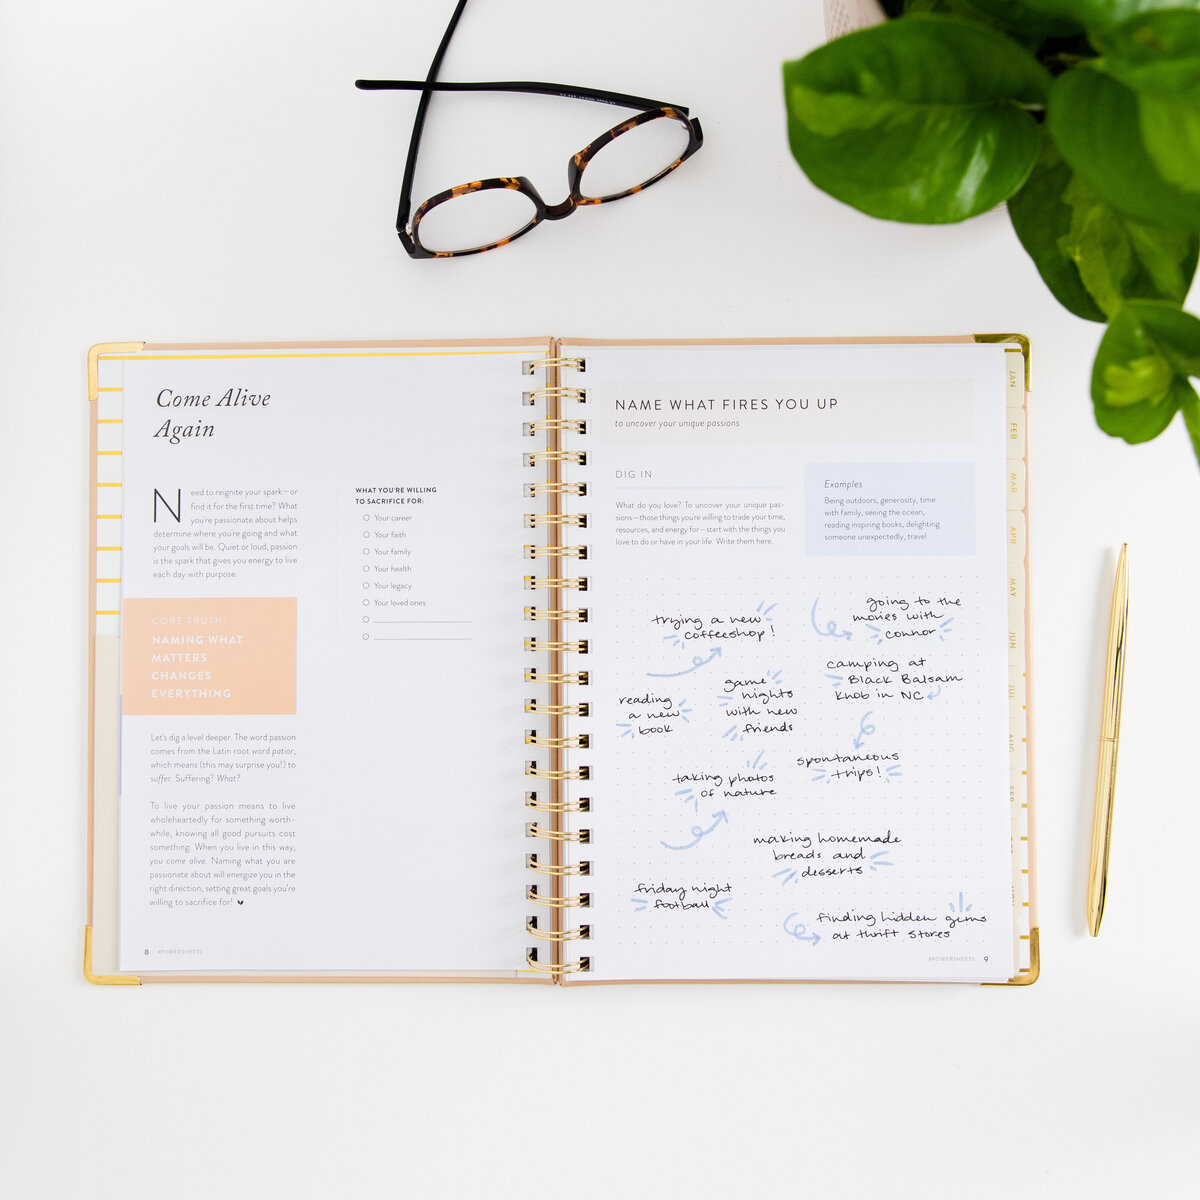 Come Alive
Again
Need to reignite your spark—or
find it for the first time? What
you're passionate about helps
determine where you're going and what
your goals will be. Quiet or loud, passion
is the spark that gives you energy to live
each day with purpose.
CORE TRUTH:
NAMING WHAT
MATTERS
CHANGES
EVERYTHING
Let's dig a level deeper. The word passion
comes from the Latin root word patior,
which means (this may surprise you!) to
suffer. Suffering? What?
To live your passion means to live
wholeheartedly for something worth-
while, knowing all good pursuits cost
something. When you live in this way,
you come alive. Naming what you are
passionate about will energize you in the
right direction, setting great goals you're
willing to sacrifice for!
8 #POWERSHEETS
WHAT YOU'RE WILLING
TO SACRIFICE FOR:
Your career
Your faith
Your family
Your health
Your legacy
Your loved ones
NAME WHAT FIRES YOU UP
to uncover your unique passions
DIG IN
What do you love? To uncover your unique pas-
sions—those things you're willing to trade your time,
resources, and energy for—start with the things you
love to do or have in your life. Write them here.
Examples
Being outdoors, generosity, time
with family, seeing the ocean,
reading inspiring books, delighting
someone unexpectedly, travel
trying a new
coffeeshop!
going to the
movies with
connor
camping at
Black Balsam
Knob in NC
reading
a new
book
game
nights
with new
friends
spontaneous
trips!
taking photos
of nature
making homemade
breads and
desserts
friday night
football
finding hidden gems
at thrift stores
#POWERSHEETS 9
JAN
FEB
MAR
APR
MAY
JUN
JUL
AUG